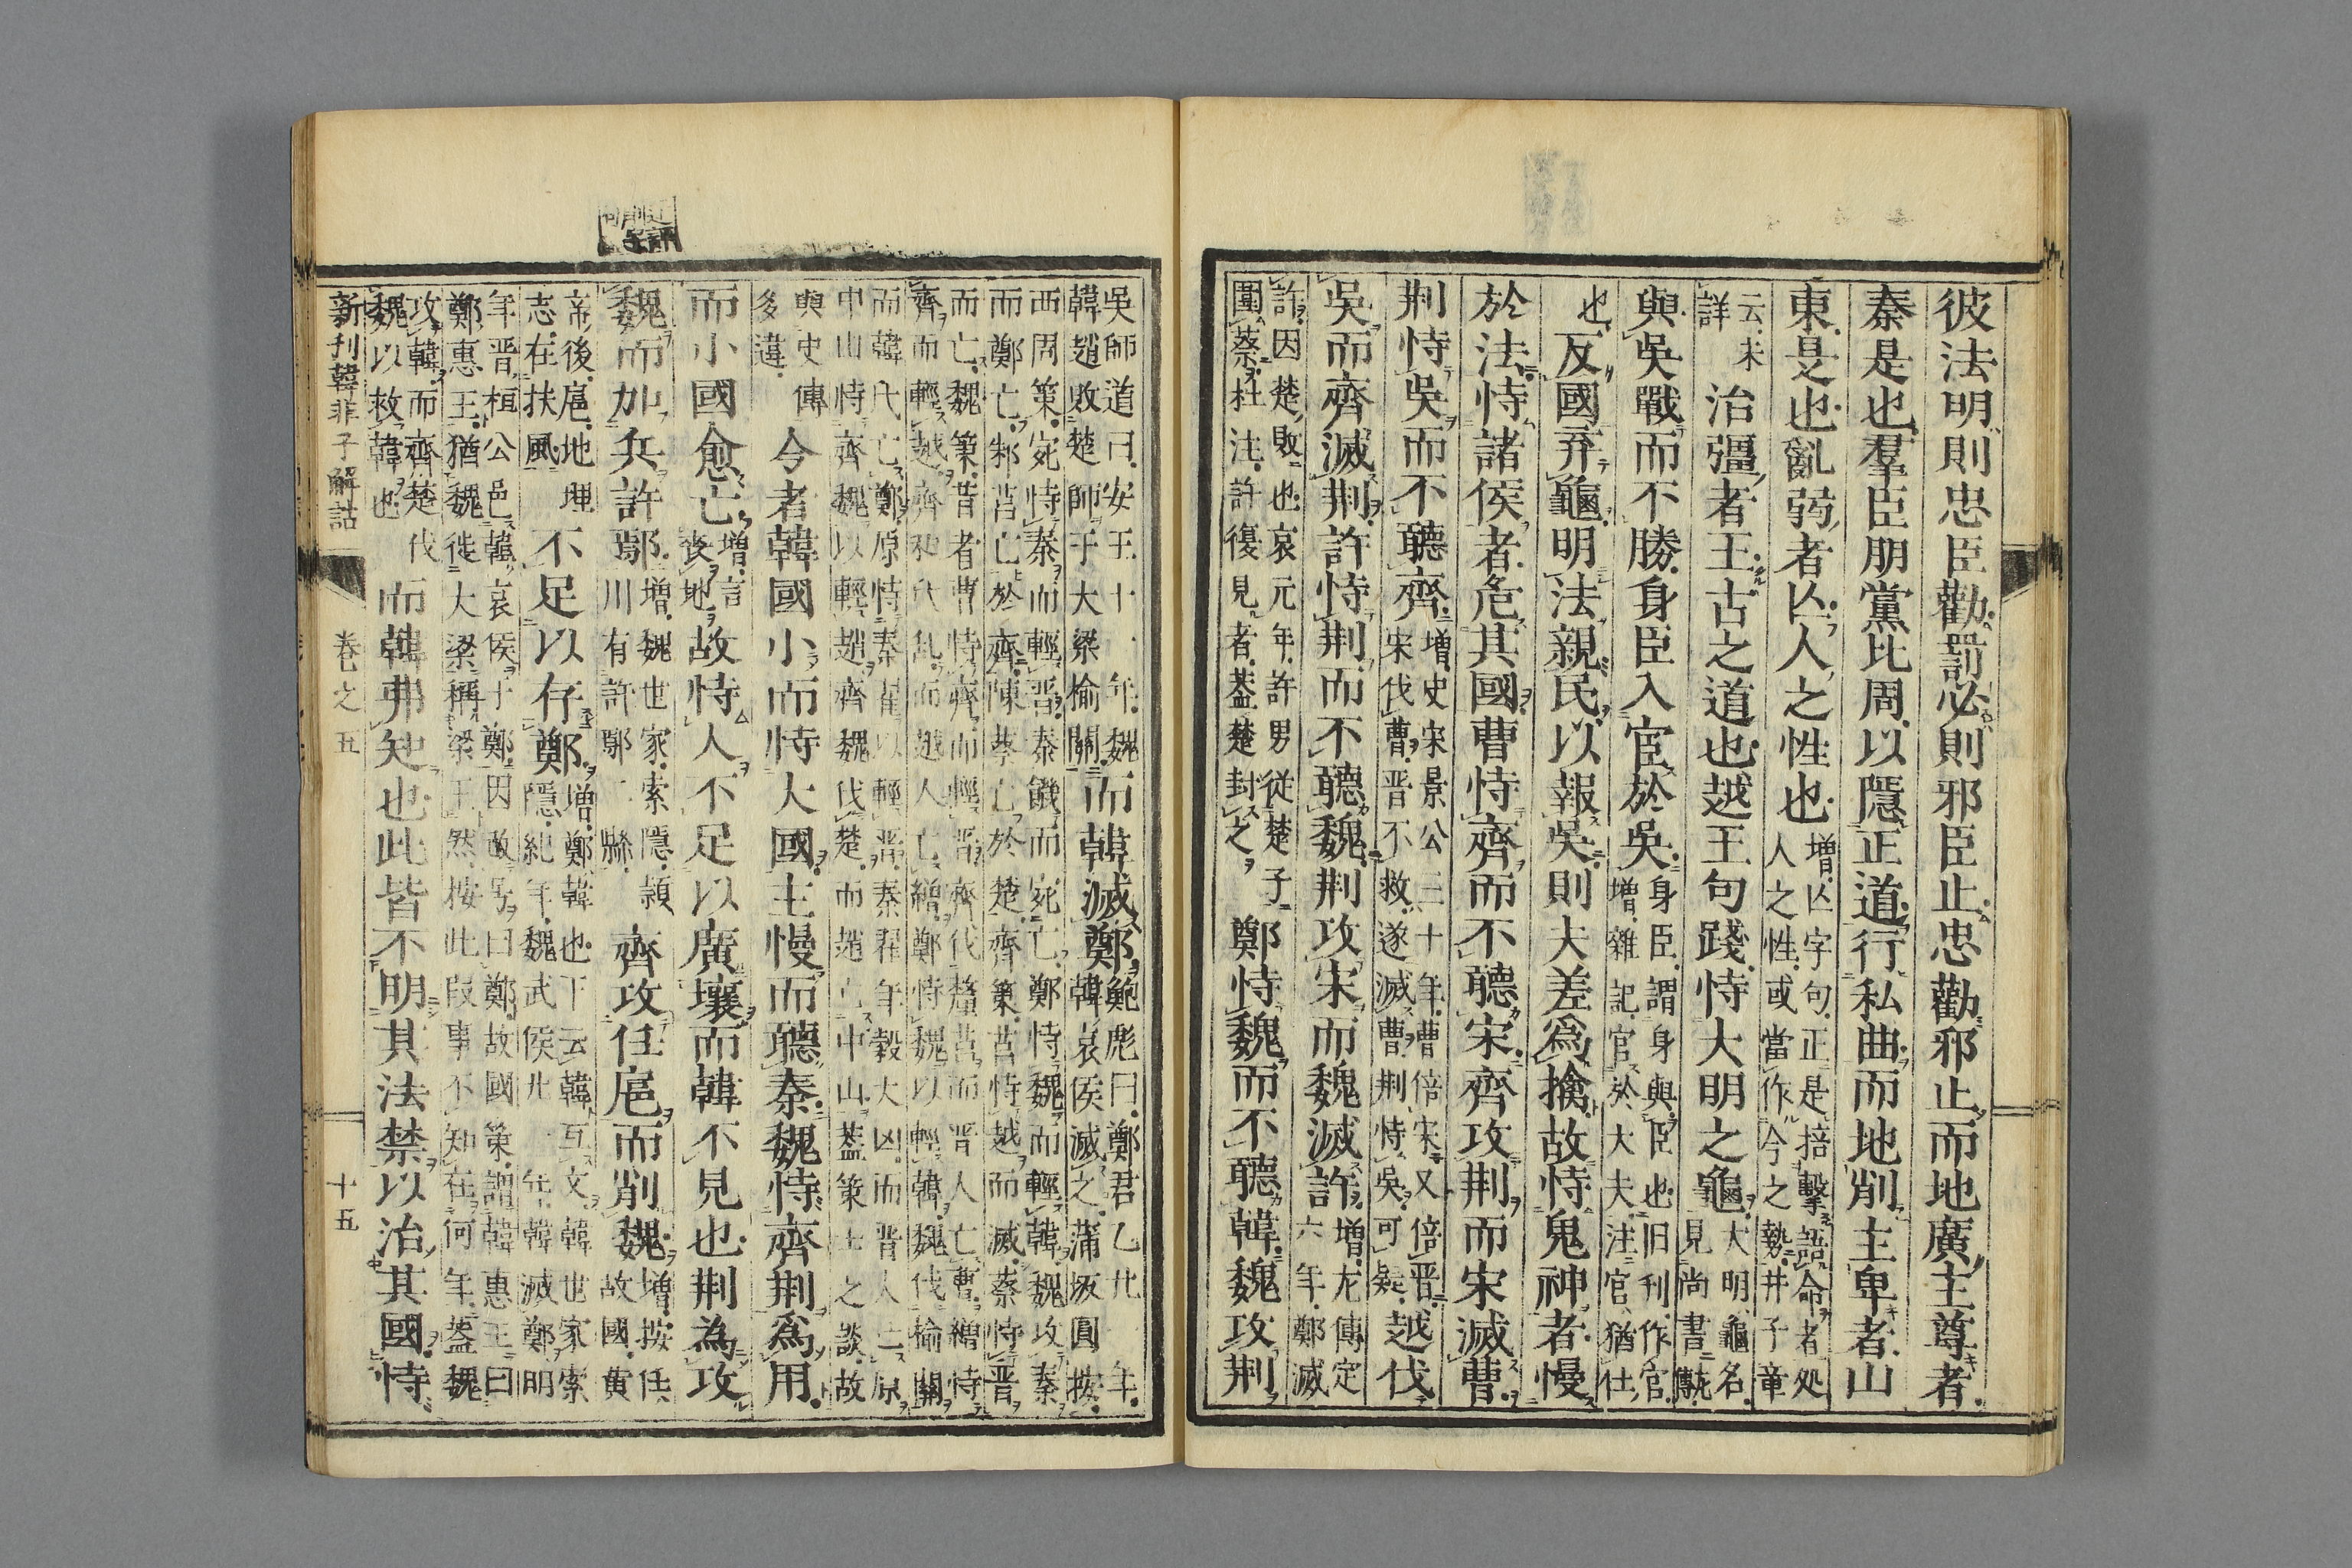 彼法明則忠臣勸罰必則邪臣止忠勸邪止而地廣主尊者
秦是也羣臣朋黨比周以隱正道行私曲而地削主卑者山
東是也亂弱者亾人之性也増亾字句正是掊擊語命者処
人之性或當作今之勢井子章
云未
詳
治彊者王古之道也越王句踐恃大明之龜大明龜名
見尚書傳
與吳戰而不勝身臣入宦於吳身臣謂身與臣也旧刊作官
増雜記官於大夫注官猶仕
也反國弃龜明法親民以報吳則夫差爲擒故恃鬼神者慢
於法恃諸侯者危其國曹恃齊而不聽宋齊攻荆而宋滅曹
荆恃吳而不聽齊増史宋景公三十年曹倍宋又倍晋
宋伐曹晋不救遂滅曹荆恃吳可疑越伐
吳而齊滅荆許恃荆而不聽魏荆攻宋而魏滅許増左傳定
六年鄭滅
許因楚敗也哀元年許男従楚子
圍蔡杜注許復見者葢楚封之
鄭恃魏而不聽韓魏攻荆
吳師道曰安王十一年魏
韓趙敗楚師于大梁榆關
而韓滅鄭鮑彪曰鄭君乙廾一年
韓哀侯滅之蒲坂圓按
西周策宛恃秦而輕晋秦饑而宛亡鄭恃魏而輕韓魏攻秦
而鄭亡邾莒亡於齊陳蔡亡於楚齊策莒恃越而滅蔡恃晋
而亡魏策昔者曹恃齊而輕晋齊伐釐莒而晋人亡曹繒恃
齊而輕越齊和氏乱而越人亡繒鄭恃魏以輕韓魏伐榆關
而韓氏亡鄭原恃秦翟以輕晋秦翟年穀大凶而晋人亡原
中山恃齊魏以輕趙齊魏伐楚而趙亡中山葢策士之談故
與史傳
多違
今者韓國小而恃大國主慢而聽秦魏恃齊荆爲用
而小國愈亡増言
丧地
故恃人不足以廣壤而韓不見也荆為攻
魏而加兵許鄢増魏世家索隱潁
川有許鄢二縣
齊攻任扈而削魏増按任
故國黄
帝後扈地理
志在扶風
不足以存鄭増鄭韓也下云韓互文韓世家索
隱紀年魏武侯廾一年韓滅鄭明
年晋桓公邑韓哀侯于鄭因改号曰鄭故國策謂韓惠王曰
鄭惠王猶魏徙大梁稱梁王然按此段事不知在何年葢魏
攻韓而齊楚伐
魏以救韓也
而韓弗知也此皆不明其法禁以治其國恃
新刊韓非子解詁　卷之五　十五